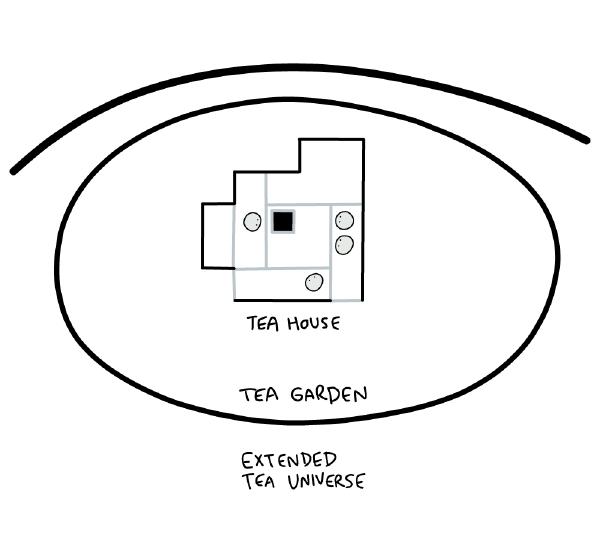 TEA HOUSE
TEA GARDEN
EXTENDED
TEA UNIVERSE